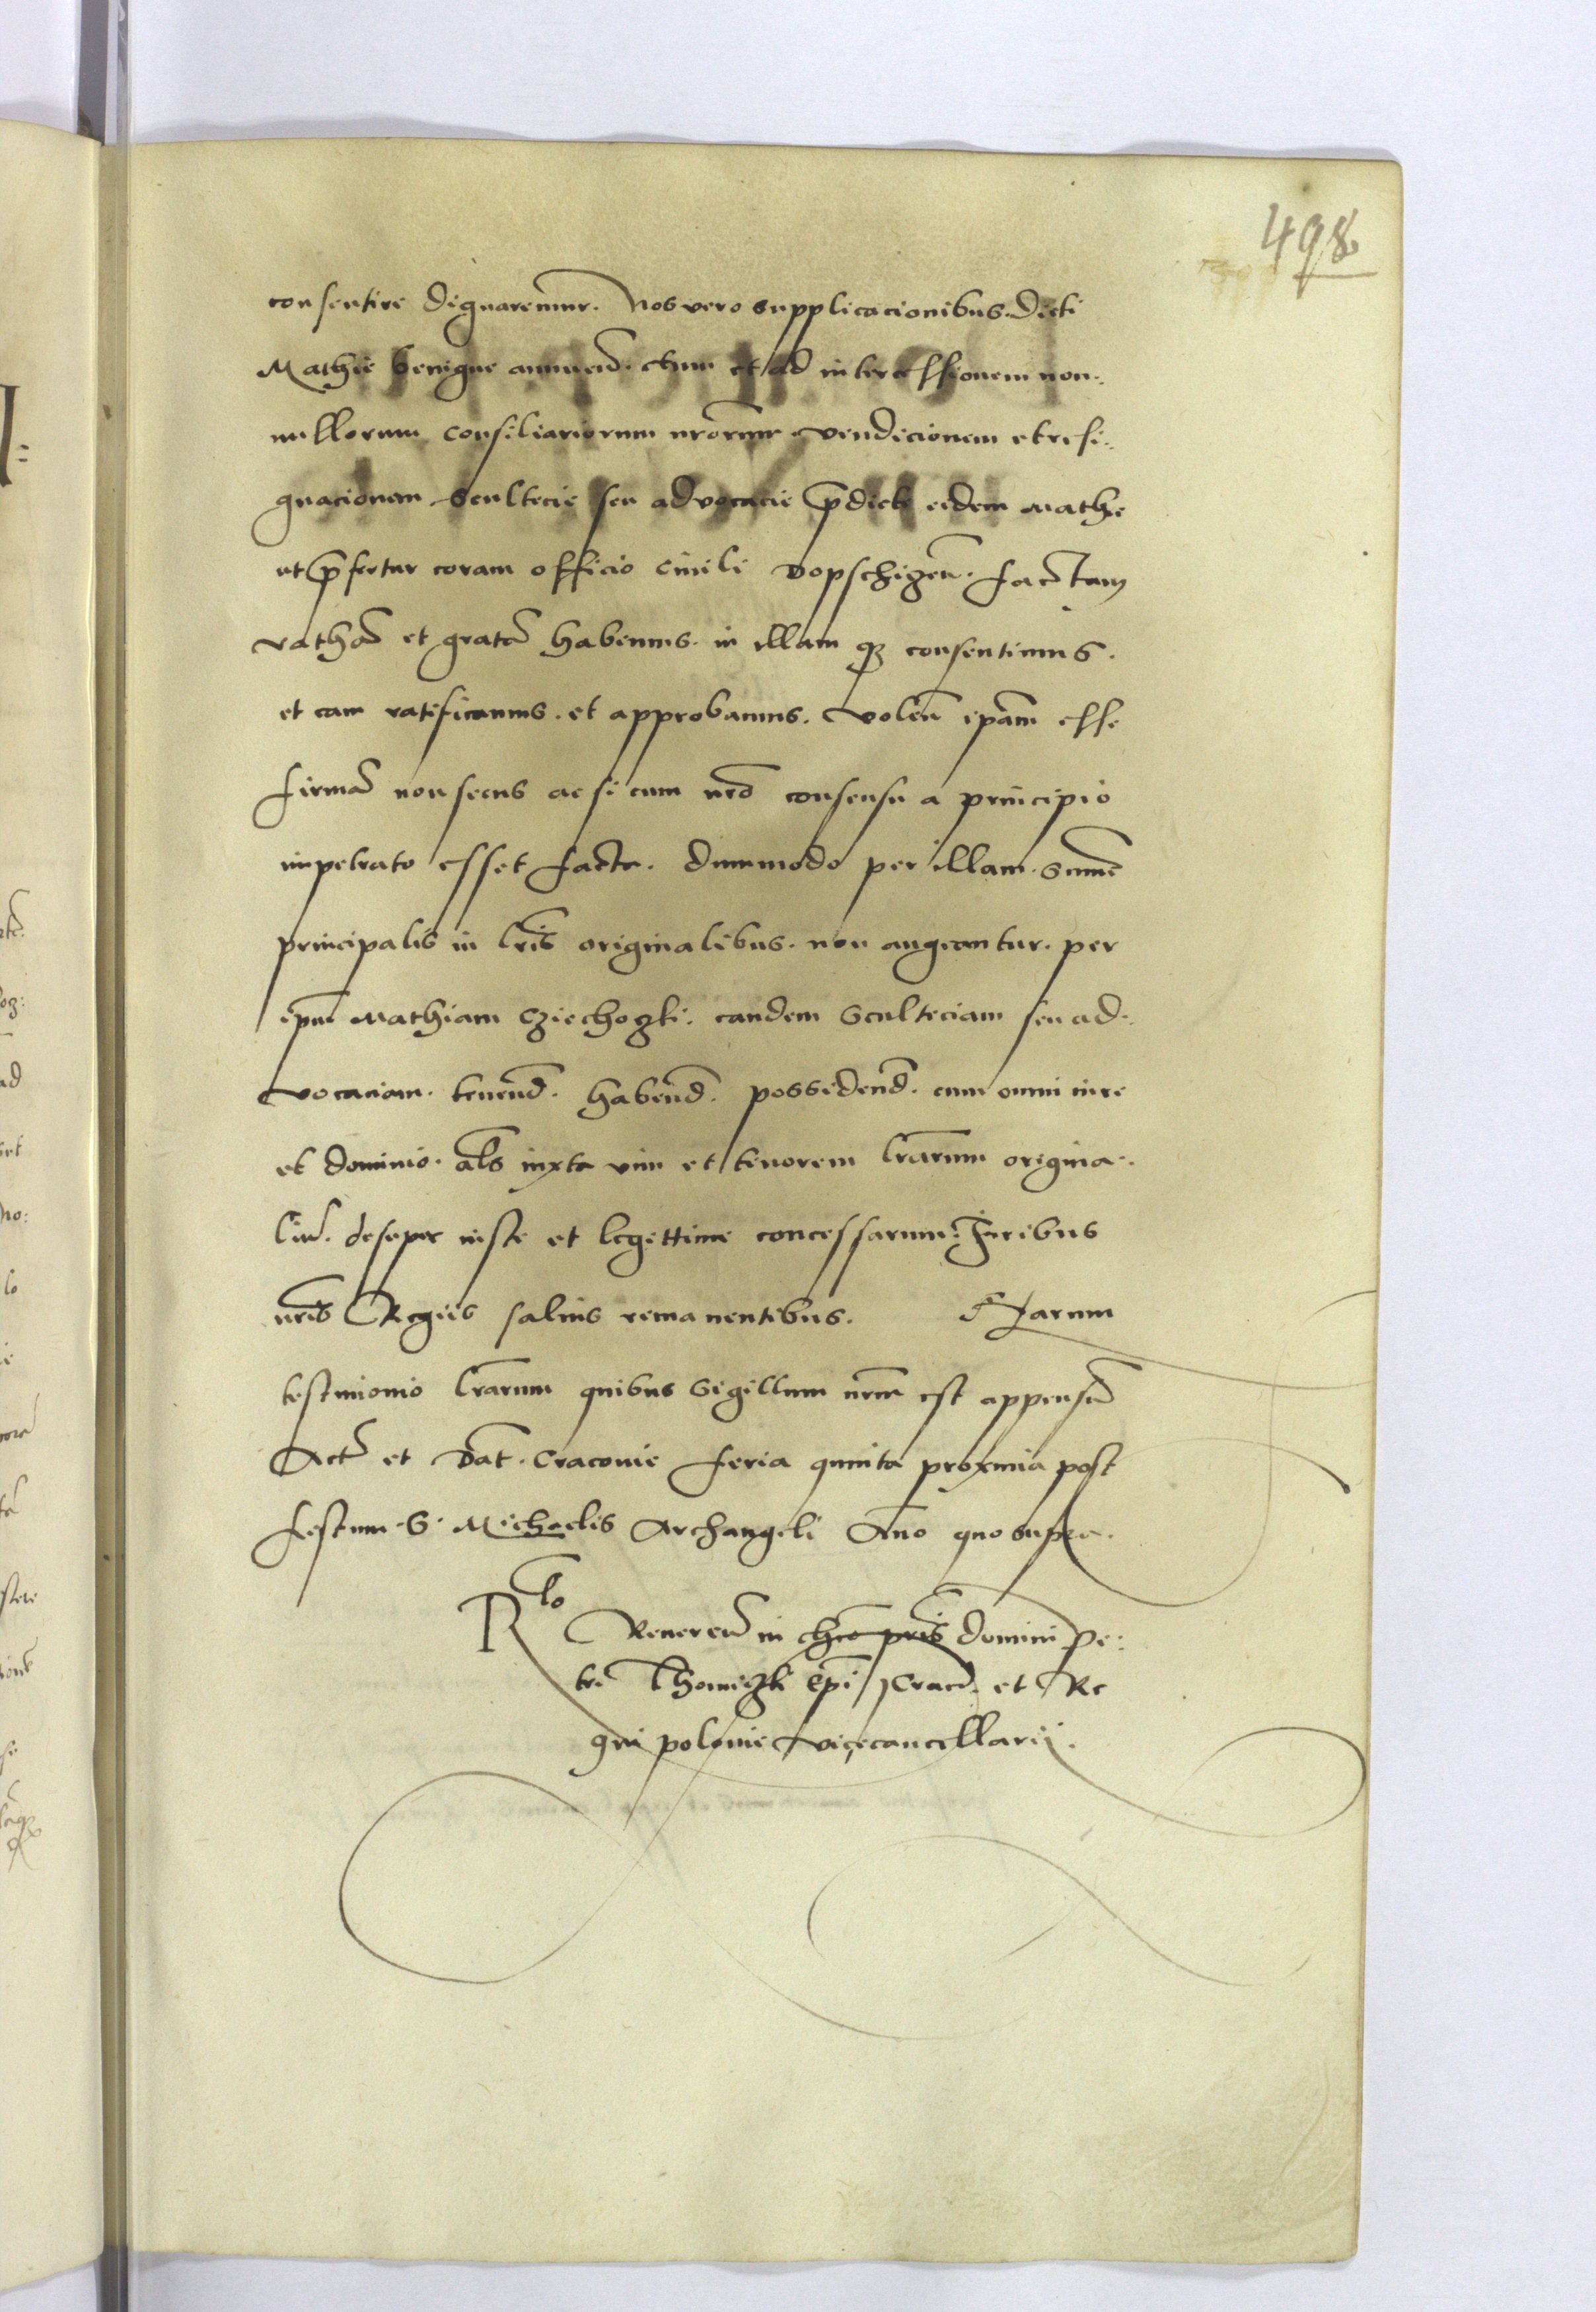 498
consentire dignaremur. Nos vero supplicacionibus dicti
Mathie benigne annuen̄. cum et ad intercessionem non-
nullorum consiliariorum nr̄orum vendicionem et resi-
gnacionem Scultecie seu advocacie p̄dicte eidem Mathe
ut p̄fertur coram officio civili Dopschizen̄. factam
rathā et gratā habemus. in illam q̄ꝫ consentimus.
et eam ratificamus. et approbamus. volen̄ ip̄am esse
firmā non secus ac si cum nr̄o consensu a principio
impetrato esset facta. dummodo per illam. summe
principalis in lr̄is originalibus. non augeantur. per
ip̄um Mathiam Cziechozki. eandem Sculteciam seu ad-
vocaciam. tenend̄. habend̄. possidend̄. cum omni iure
et dominio. al̄s iuxta vim et tenorem lr̄arum origina-
liū. desuper iuste et legittime concessarum. Juribus
nr̄is Regiis salvis remanentibus. Harum
testimonio lr̄arum quibus Sigillum nr̄m est appensū
Actū et Dat̄. Cracovie feria quinta proxima post
festum S. Michaelis Archangeli An̄o quo supra.
R̄lo Reveren̄ in chr̄o pr̄is domini Pe-
tri Thomiczki Ep̄i Cracō. et Re
gni polonie vicecancellarij.